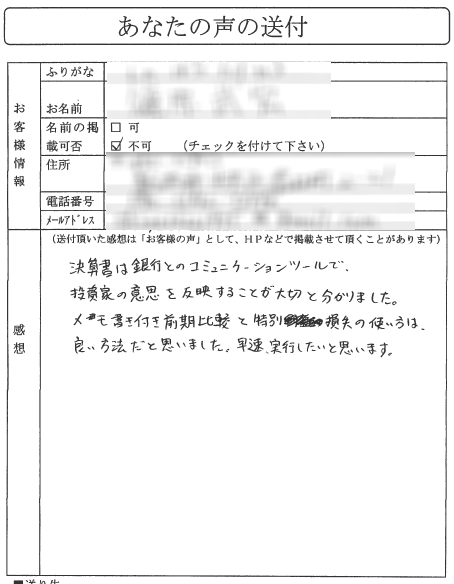 あなたの声の送付
お客様情報
ふりがな
お名前
名前の掲載可否
□ 可
☑ 不可 (チェックを付けて下さい)
住所
電話番号
ﾒｰﾙｱﾄﾞﾚｽ
感想
(送付頂いた感想は「お客様の声」として、HPなどで掲載させて頂くことがあります)
決算書は銀行とのコミュニケーションツールで、
投資家の意思を反映することが大切と分かりました。
メモ書き付き前期比較と特別損失の使い方は、
良い方法だと思いました。早速、実行したいと思います。